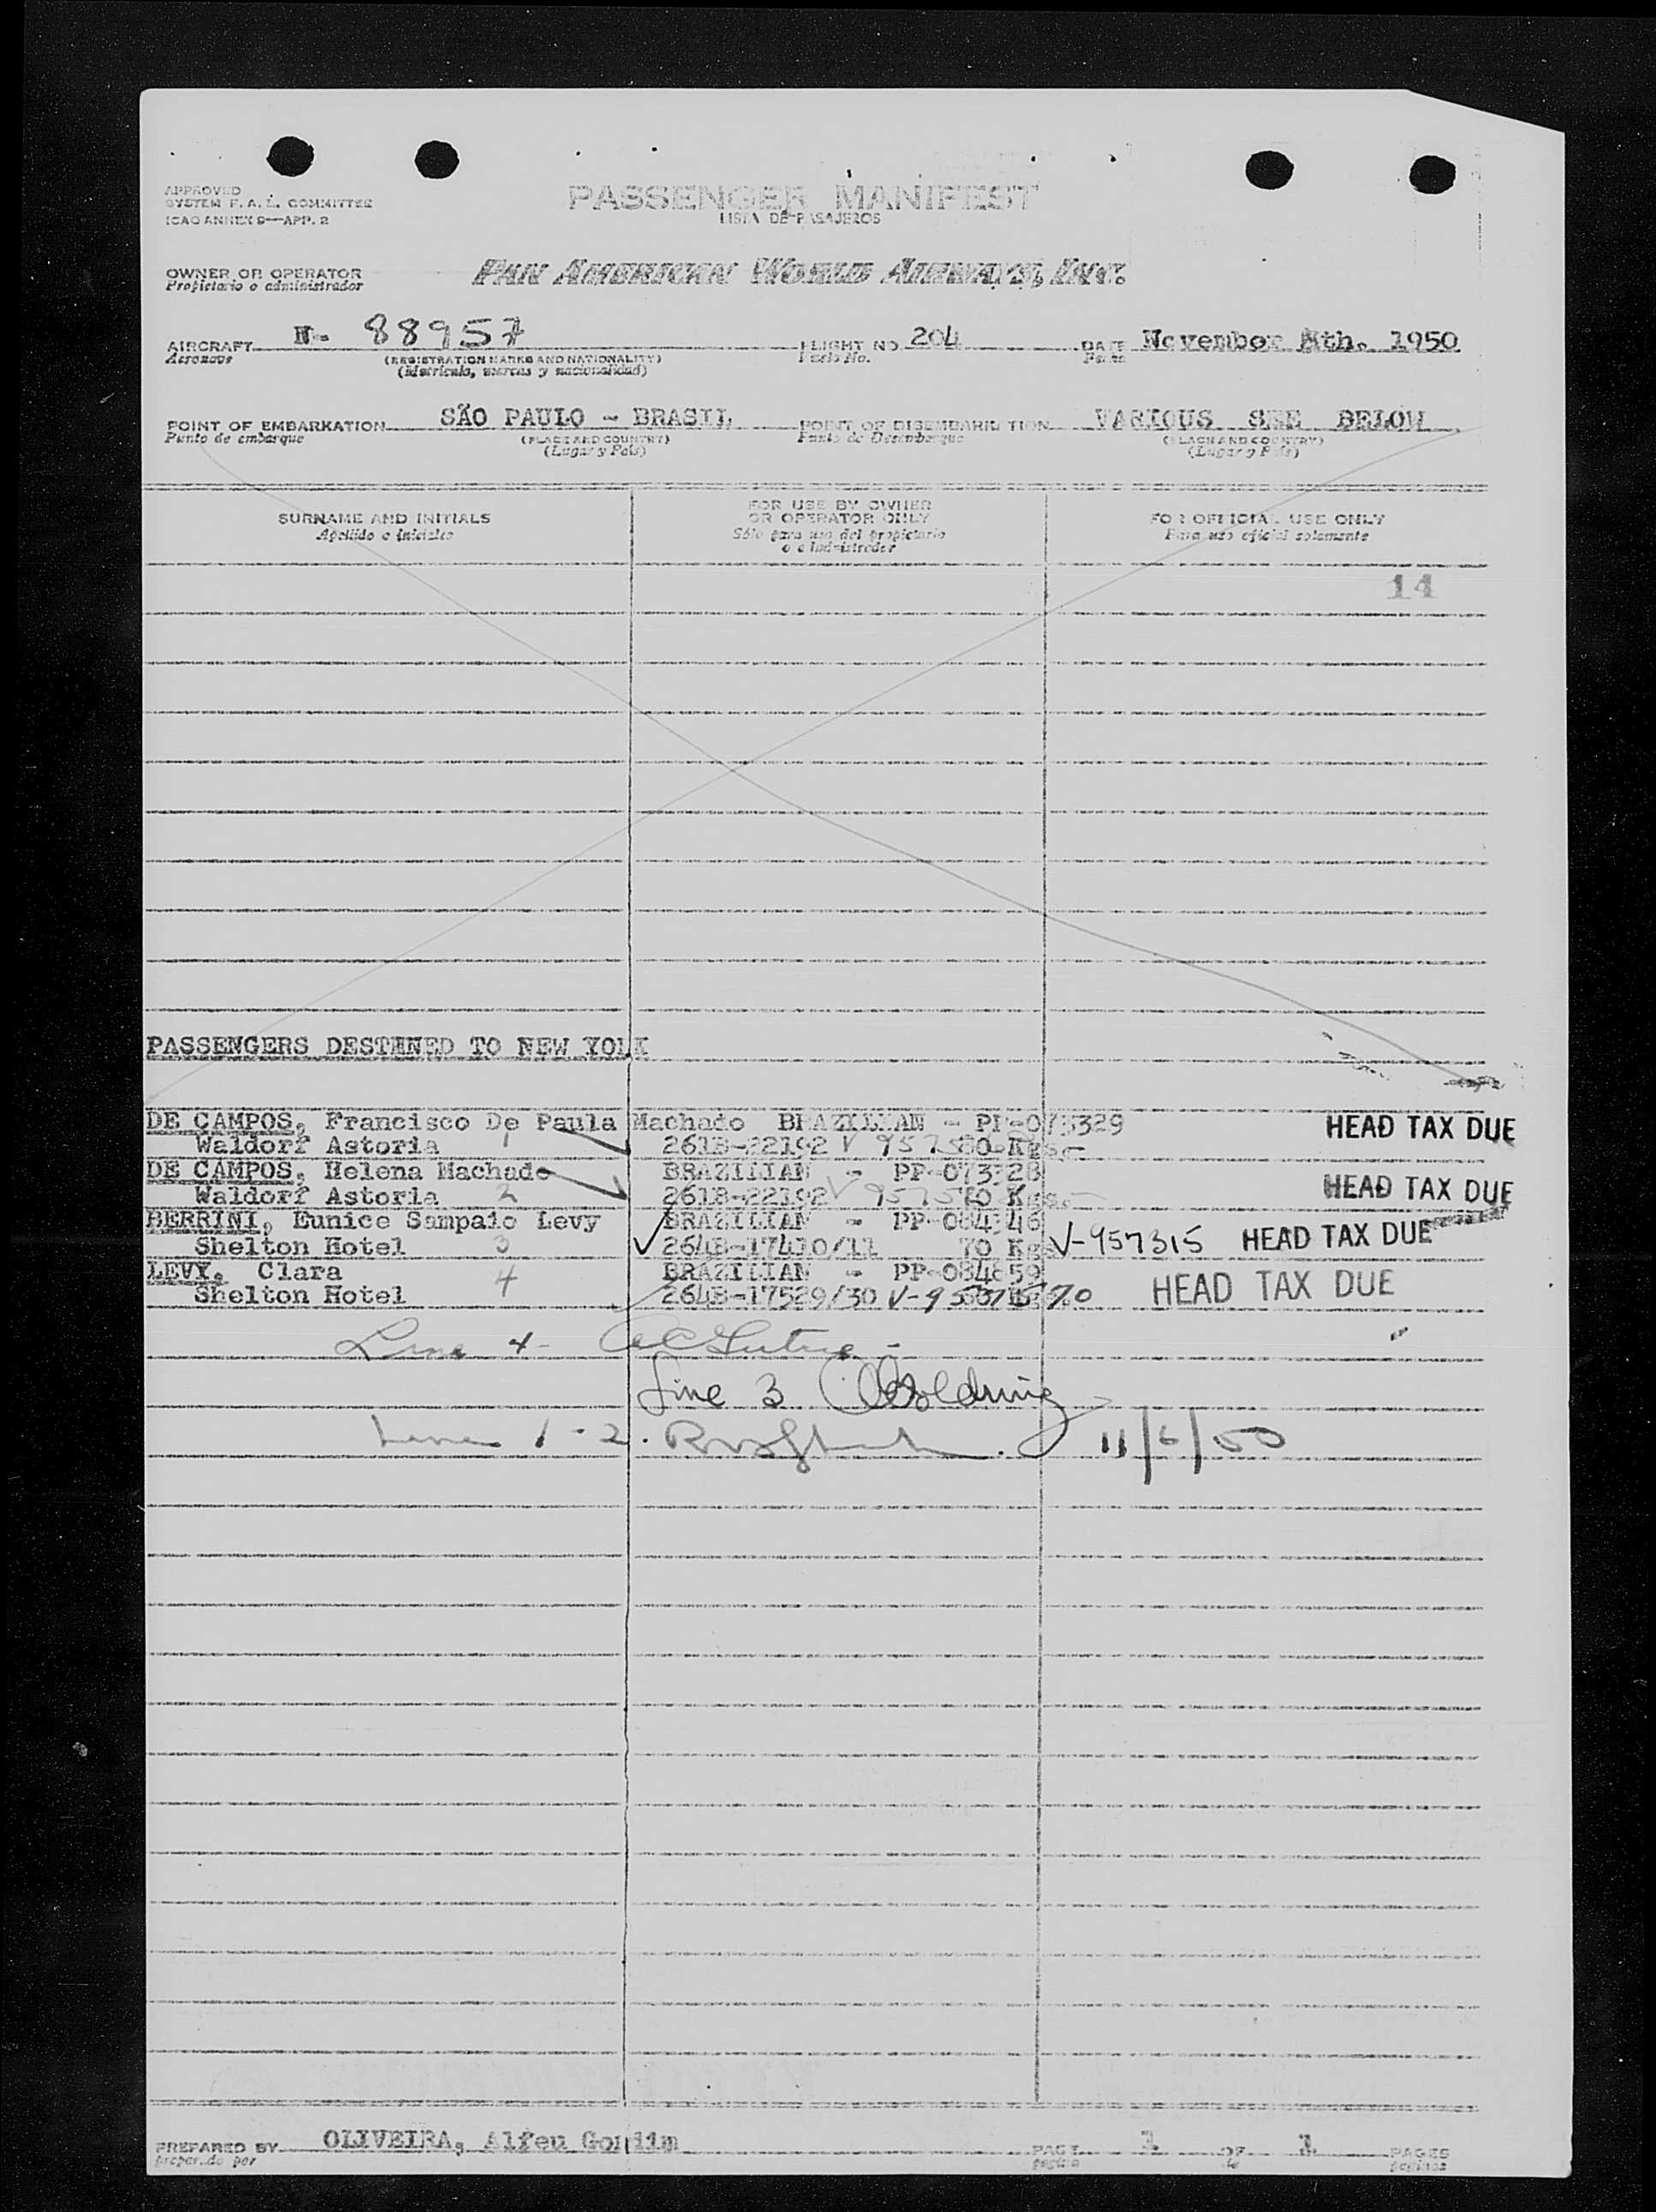 APPROVED
SYSTEM F. A. L. COMMITTEE
ICAO ANNEX 9—APP. 2
PASSENGER MANIFEST
LISTA DE PASAJEROS
OWNER OR OPERATOR
Propietario o administrador
PAN AMERICAN WORLD AIRWAYS, INC.
AIRCRAFT N- 88957 FLIGHT NO. 204 DATE November 5th. 1950
Aeronave (REGISTRATION MARKS AND NATIONALITY) Vuelo No. Fecha
(Matrícula, marcas y nacionalidad)
POINT OF EMBARKATION SÃO PAULO - BRASIL POINT OF DISEMBARKATION VARIOUS SEE BELOW
Punto de embarque (PLACE AND COUNTRY) Punto de Desembarque (PLACE AND COUNTRY)
(Lugar y País) (Lugar y País)
SURNAME AND INITIALS
Apellido e iniciales
FOR USE BY OWNER
OR OPERATOR ONLY
Sólo para uso del propietario
o administrador
FOR OFFICIAL USE ONLY
Para uso oficial solamente
14
PASSENGERS DESTINED TO NEW YORK
DE CAMPOS, Francisco De Paula Machado BRAZILIAN - PP-073329 HEAD TAX DUE
Waldorf Astoria 1 261B-22192 V 957 80 Kgs.-
DE CAMPOS, Helena Machado BRAZILIAN - PP-073328 HEAD TAX DUE
Waldorf Astoria 2 261B-22192 V 957 70 Kgs.-
BERRINI, Eunice Sampaio Levy BRAZILIAN - PP-084346
Shelton Hotel 3 264B-17410/11 70 Kgs V-957315 HEAD TAX DUE
LEVY, Clara BRAZILIAN - PP-084659
Shelton Hotel 4 264B-17529/30 HEAD TAX DUE
Line 4 -
Line 3 Goldring
Line 1-2. 11/6/50
PREPARED BY OLIVEIRA, Alfeu PAGE 1 OF 1 PAGES
preparado por página de páginas